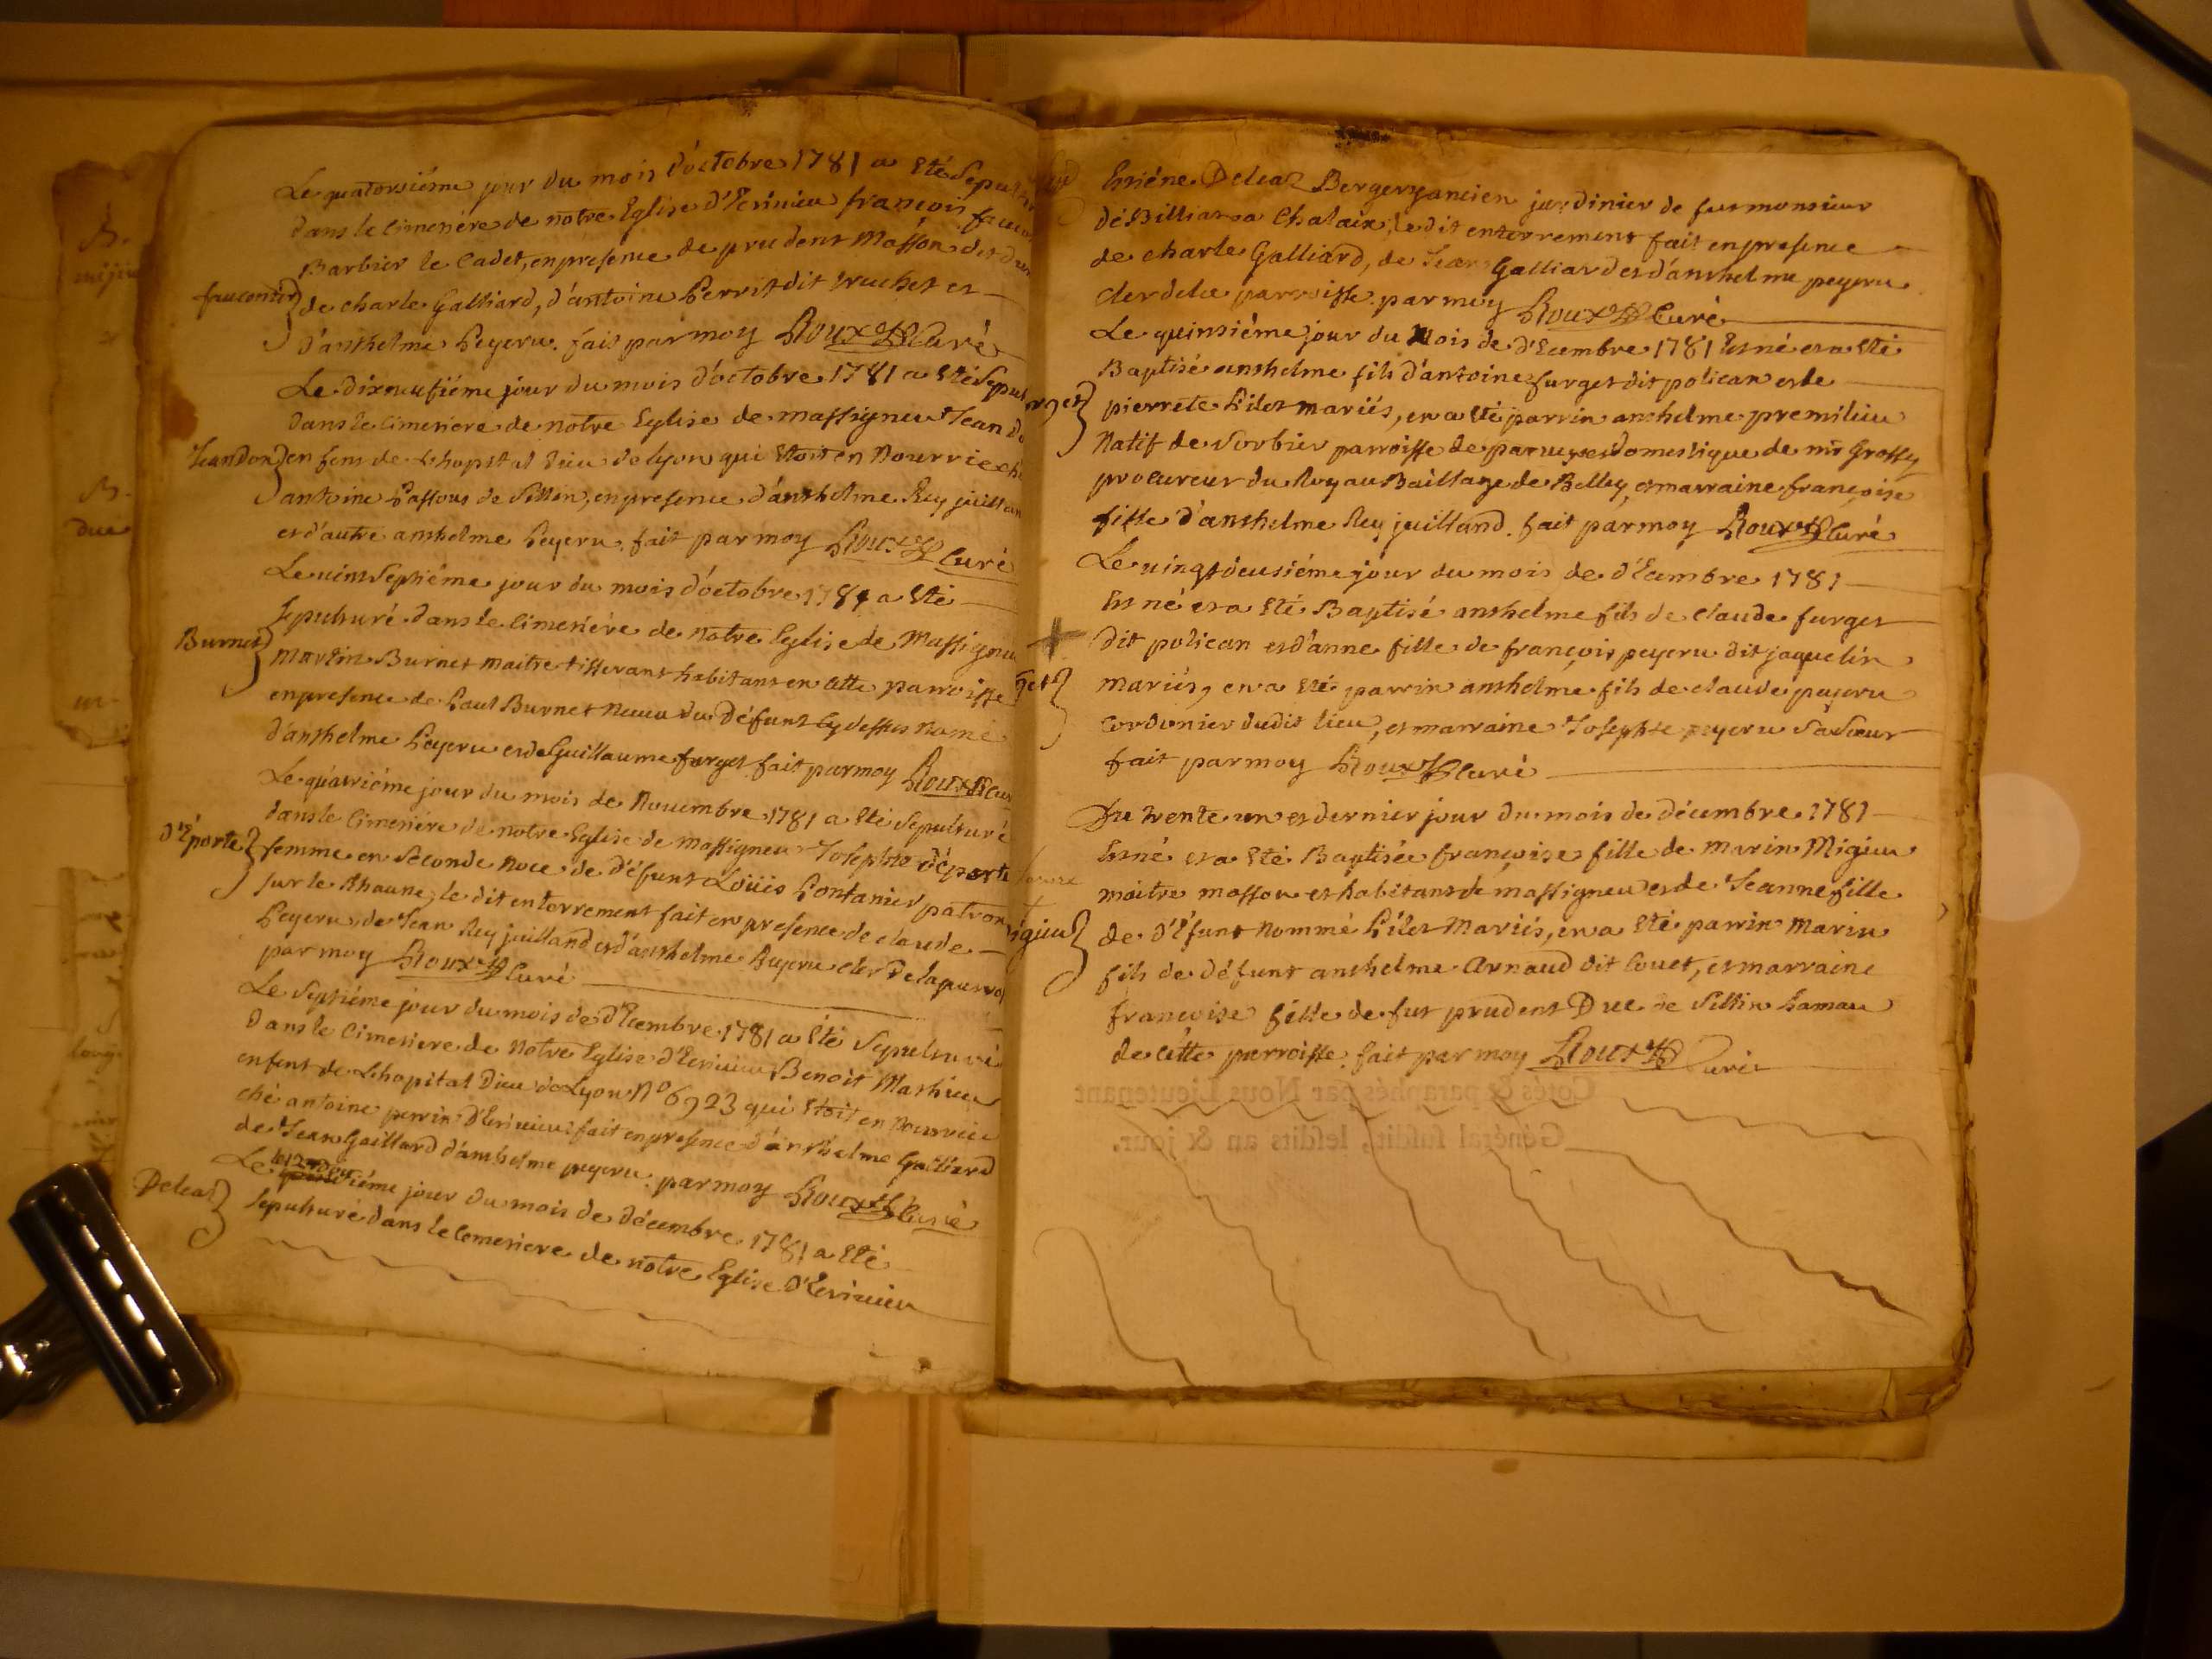 Le quatorsiéme jour du mois d'octobre 1781 a Eté Sepul
dans le Cimetiére de notre Eglise d'Ecrivieu françois
Barbier le Cadet, en presence de prudent Masson
de charle Galliard, d'antoine Perrit dit truchet et
d'anthelme Peyeru. fait par moy Roux Curé
Le dixneufiéme jour du mois d'octobre 1781 a Eté Sepul
dans le Cimetiere de notre Eglise de Massigneu Jean
Jeandon
enfens de L'hopital Dieu de Lyon qui Etoit en Nourrie
antoine Passous de Sillin, en presence d'anthelme Rey juilland
et d'autre anthelme Peyeru. fait par moy Roux Curé
Le vint Septiéme jour du mois d'octobre 1781 a Eté
Sepulturé dans le Cimetiére de notre Eglise de Massigneu
Burnet
Martin Burnet maitre tisserant habitant en cette parroisse
en presence de Paul Burnet neveu du Défunt cy dessus nomé
d'anthelme Peyeru et de Guillaume furget fait par moy Roux
Le quatriéme jour du mois de Novembre 1781 a Eté Sepulturé
dans le Cimetiére de notre Eglise de Massigneu Josephte déporte
D'Eporte
femme en Seconde Noce de Défunt Loüis Pontanier patron
sur le Rhaune, le dit enterrement fait en presence de claude
Peyeru, de Jean Rey juilland et d'anthelme Peyeru cler De la parro
par moy Roux Curé
Le Septiéme jour du mois de D'Ecembre 1781 a Eté Sepulturé
Dans le Cimetiere de Notre Eglise D'Ecrivieu Benoit Mathieu
enfent de L'hopital Dieu de Lyon N° 6923 qui Etoit en Nourrice
ché antoine perrin D'Ecrivieu fait en presence d'anthelme Galliard
de Jean Gaillard d'anthelme peyeru. par moy Roux Curé
Le jour du mois de décembre 1781 a Eté
Deleaz
Sepulturé dans le Cemetiere de notre Eglise D'Ecrivieu
Etiéne Deleaz Berger ancien jardinier de fut monsieur
de charle Galliard, de Jean Galliard et d'anthelme peyeru
cler de la parroisse par moy Roux Curé
Le quinsiéme jour du Mois de d'Ecembre 1781 Est né et a Eté
Baptisé anthelme fils d'antoine furget dit polican et de
pierrete Pilet mariés, en a Eté parrin anthelme premilieu
Natif de Sorbier parroisse de et domestique de mr Grossy
procureur du Roy au Baillage de Belley, et marraine françoise
fille d'anthelme Rey juilland. fait par moy Roux Curé
Le vingt deusiéme jour du mois de d'Ecembre 1781
Est né et a Eté Baptisé anthelme fils de claude furget
dit polican et d'anne fille de françois peyeru dit jaquelin
mariés, en a Eté parrin anthelme fils de claude peyeru
Cordonier dudit lieu, et marraine Josephte peyeru Sa Sœur
fait par moy Roux Curé
Du trente un et dernier jour du mois de décembre 1781
Est né et a Eté Baptisée françoise fille de Marin Migieu
maitre masson et habitant de massigneu et de Jeanne fille
de D'Efunt Nommé Pilet Mariés, en a Eté parrin Marin
fils de défunt anthelme Arnaud dit Couet, et marraine
françoise fille de fut prudent Duc de Sillin hamau
de cette parroisse. fait par moy Roux Curé
Cotés & paraphés par Nous Lieutenant
Général susdit, lesdits an & jour.